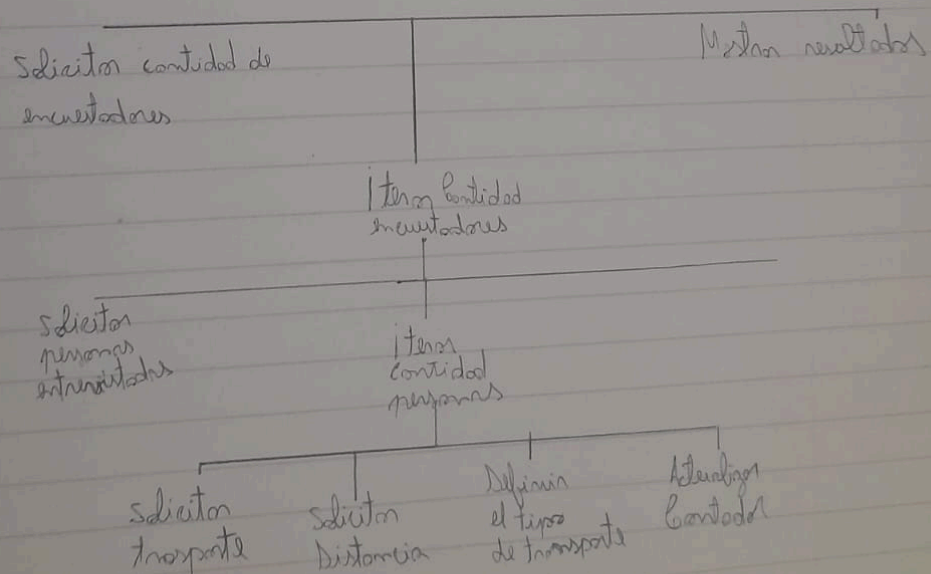 Solicitar cantidad de
encuestadores
Mostrar resultados
Iterar Cantidad
encuestadores
Solicitar
personas
entrevistadas
iterar
cantidad
personas
Solicitar
trasporte
Solicitar
Distancia
Definir
el tipo
de transporte
Actualizar
Contador